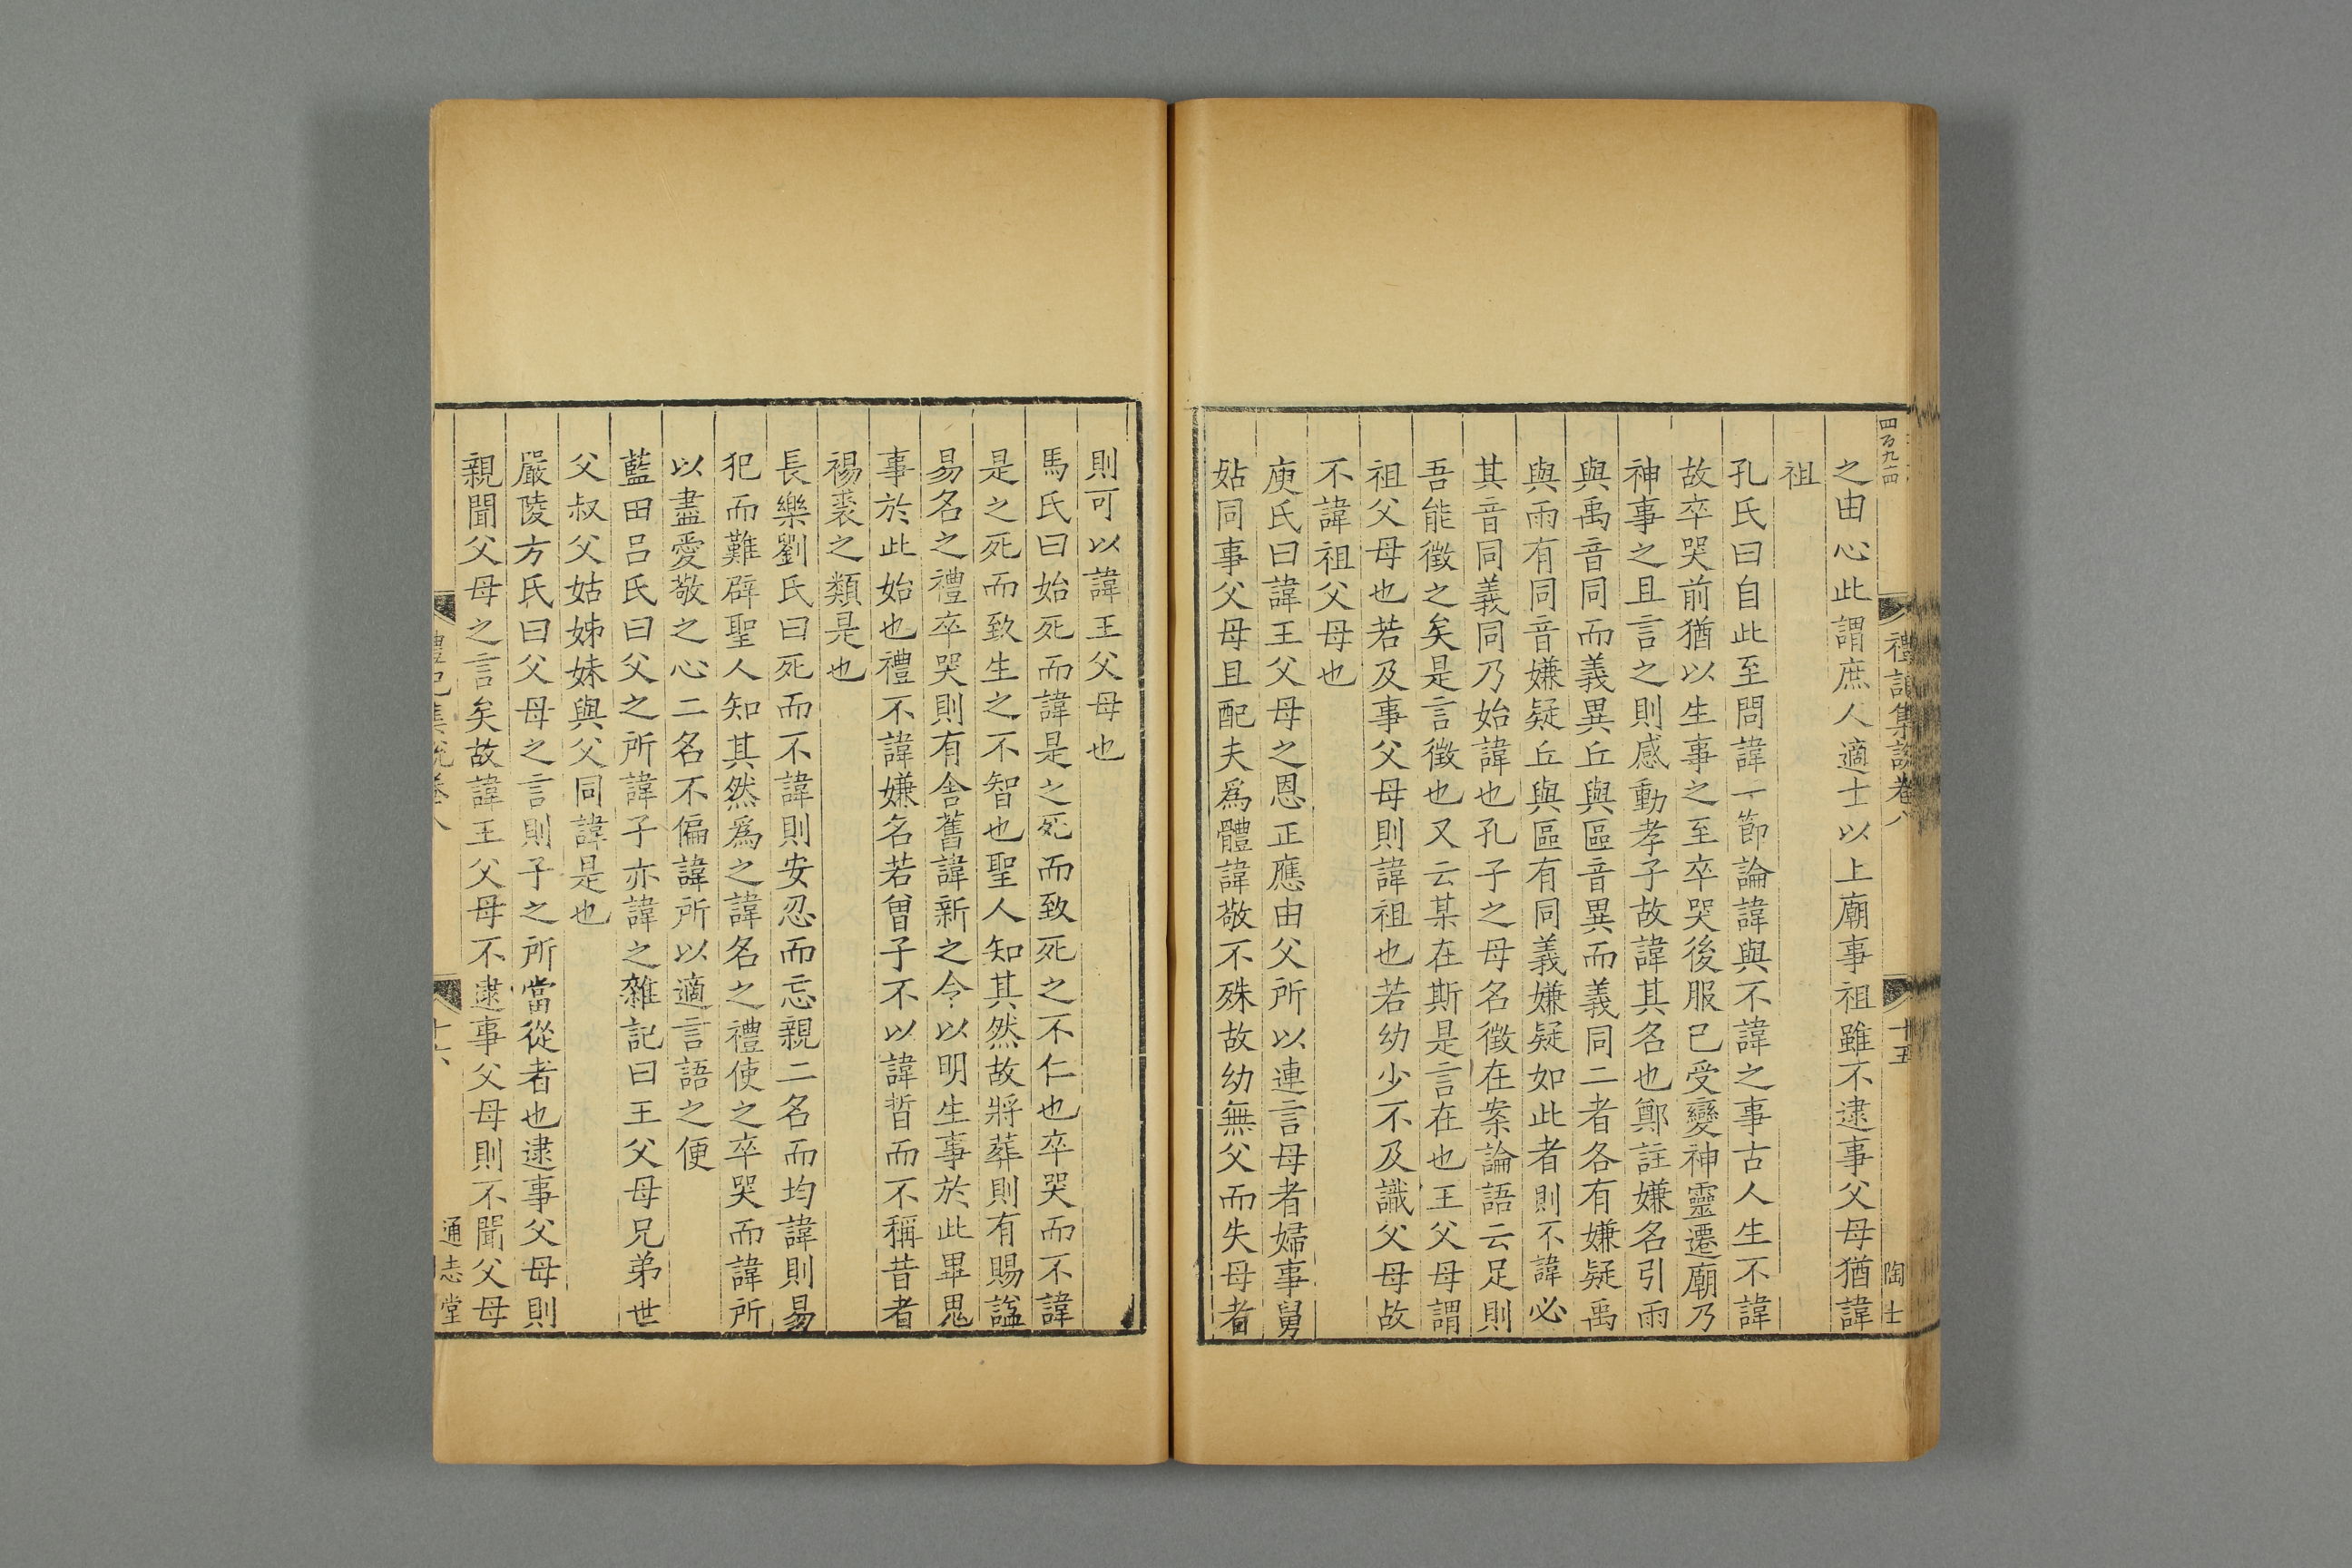 四百九十四
禮記集說卷八
十五
陶士
之由心此謂庶人適士以上廟事祖雖不逮事父母猶諱
祖
孔氏曰自此至問諱一節論諱與不諱之事古人生不諱
故卒哭前猶以生事之至卒哭後服已受變神靈遷廟乃
神事之且言之則感動孝子故諱其名也鄭註嫌名引雨
與禹音同而義異丘與區音異而義同二者各有嫌疑禹
與雨有同音嫌疑丘與區有同義嫌疑如此者則不諱必
其音同義同乃始諱也孔子之母名徵在案論語云足則
吾能徵之矣是言徵也又云某在斯是言在也王父母謂
祖父母也若及事父母則諱祖也若幼少不及識父母故
不諱祖父母也
庾氏曰諱王父母之恩正應由父所以連言母者婦事舅
姑同事父母且配夫爲體諱敬不殊故幼無父而失母者
則可以諱王父母也
馬氏曰始死而諱是之死而致死之不仁也卒哭而不諱
是之死而致生之不智也聖人知其然故將葬則有賜諡
易名之禮卒哭則有舍舊諱新之令以明生事於此畢鬼
事於此始也禮不諱嫌名若曾子不以諱晳而不稱昔者
裼裘之類是也
長樂劉氏曰死而不諱則安忍而忘親二名而均諱則易
犯而難辟聖人知其然爲之諱名之禮使之卒哭而諱所
以盡愛敬之心二名不偏諱所以適言語之便
藍田呂氏曰父之所諱子亦諱之雜記曰王父母兄弟世
父叔父姑姊妹與父同諱是也
嚴陵方氏曰父母之言則子之所當從者也逮事父母則
親聞父母之言矣故諱王父母不逮事父母則不聞父母
禮記集說卷八
十六
通志堂